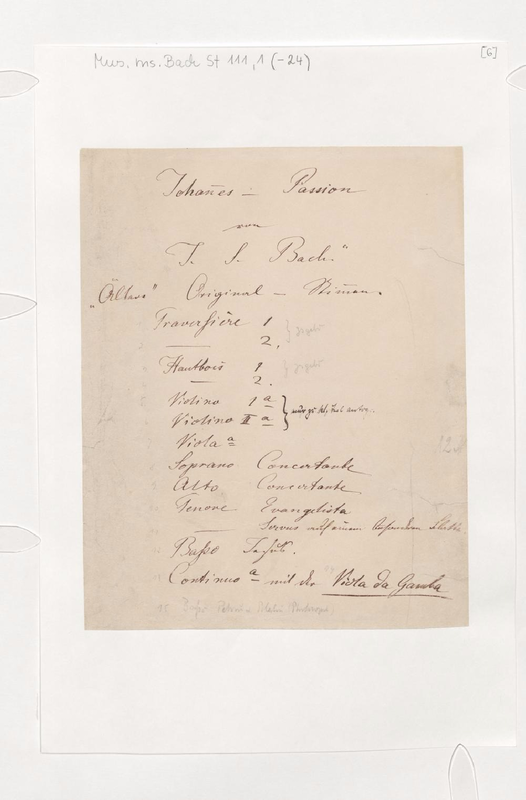 Mus. ms. Bach St 111,1 (-24)
[6]
Johan̄es – Passion
von
J. S. Bach."
„Ältere" Original – Stim̄en.
Traversière 1
— 2.
Hautbois 1
— 2.
Violino 1 a
Violino II a
Viola a
Soprano Concertante
Alto Concertante
Tenore Evangelista
— Servus auf einem
Basso Jesus.
Continuo a mit der Viola da Gamba